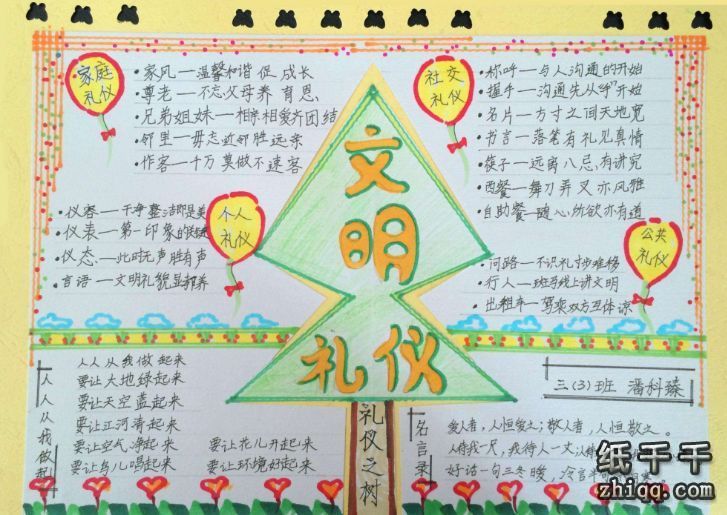 家庭
礼仪
·家风—温馨和谐 促 成长
·尊老—不忘父母养 育恩
·兄弟姐妹—相亲相爱齐团结
·邻里—毋忘近邻胜远亲
·作客—千万莫做不速客
社交
礼仪
·称呼—与人沟通的开始
·握手—沟通先从"手"开始
·名片—方寸之间天地宽
·书言—落笔有礼见真情
·筷子—远离八忌,有讲究
·西餐—舞刀弄叉亦风雅
·自助餐—随心所欲亦有道
个人
礼仪
·仪容—干净整洁即是美
·仪表—第一印象的关键
·仪态—此时无声胜有声
·言语—文明礼貌显邦养
公共
礼仪
·问路—不识礼寸步难移
·行人—班马线上讲文明
·出租车—驾乘双方互体谅
文
明
礼仪
礼仪之树
人人从我做起
人人从我做起来
要让大地绿起来
要让天空蓝起来
要让江河清起来
要让空气净起来
要让鸟儿唱起来
要让花儿开起来
要让环境好起来
三(3)班 潘科臻
名言录
爱人者,人恒爱之;敬人者,人恒敬之。
人待我一尺,我待人一丈
好话一句三冬暖,冷言半
纸千千
zhiqq.com